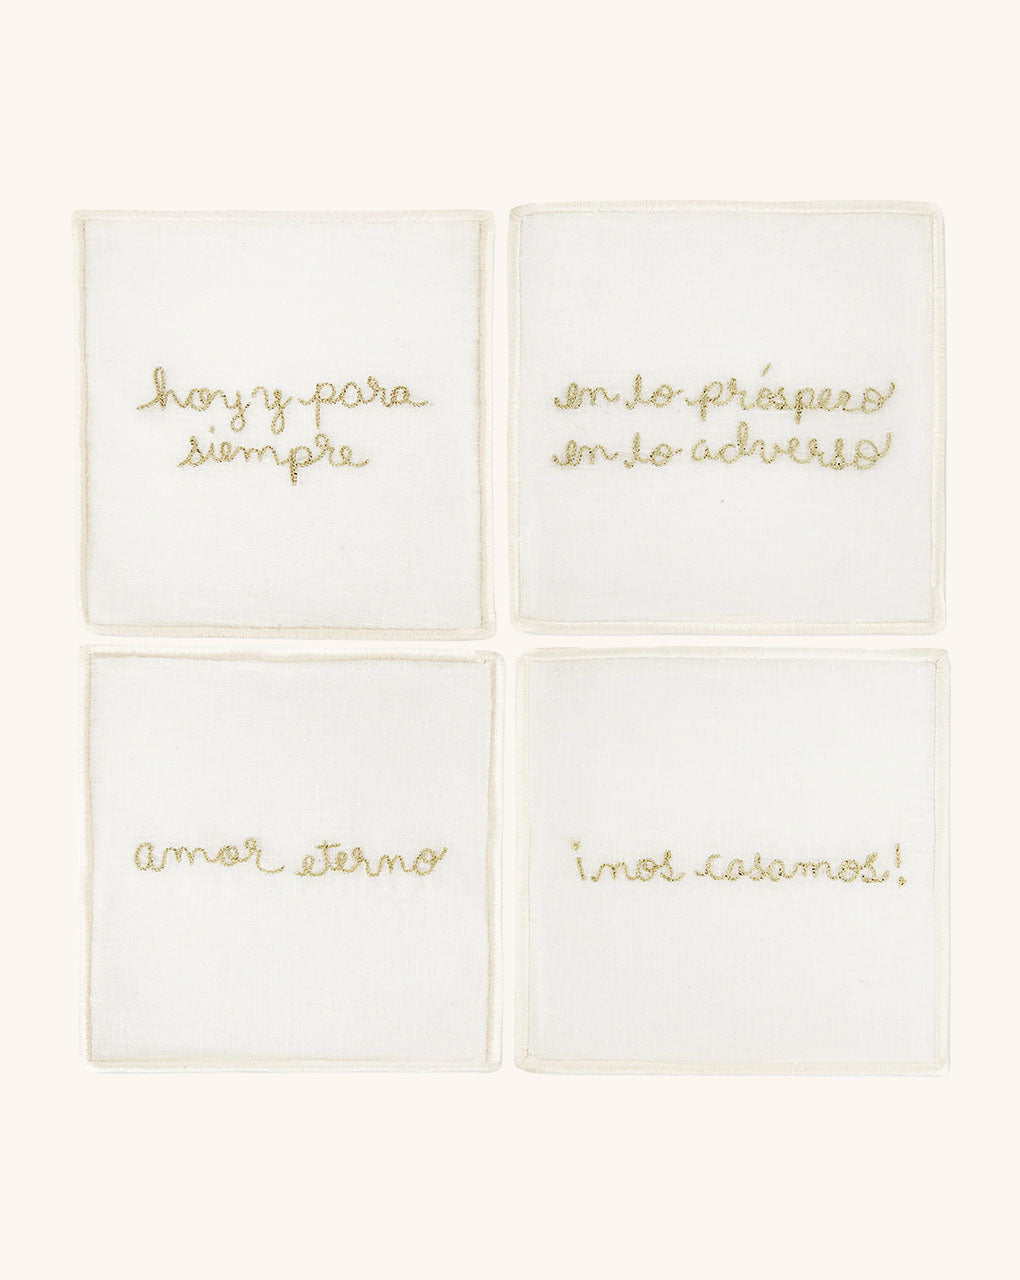 hoy y para
siempre
en lo próspero
en lo adverso
amor eterno
¡nos casamos!